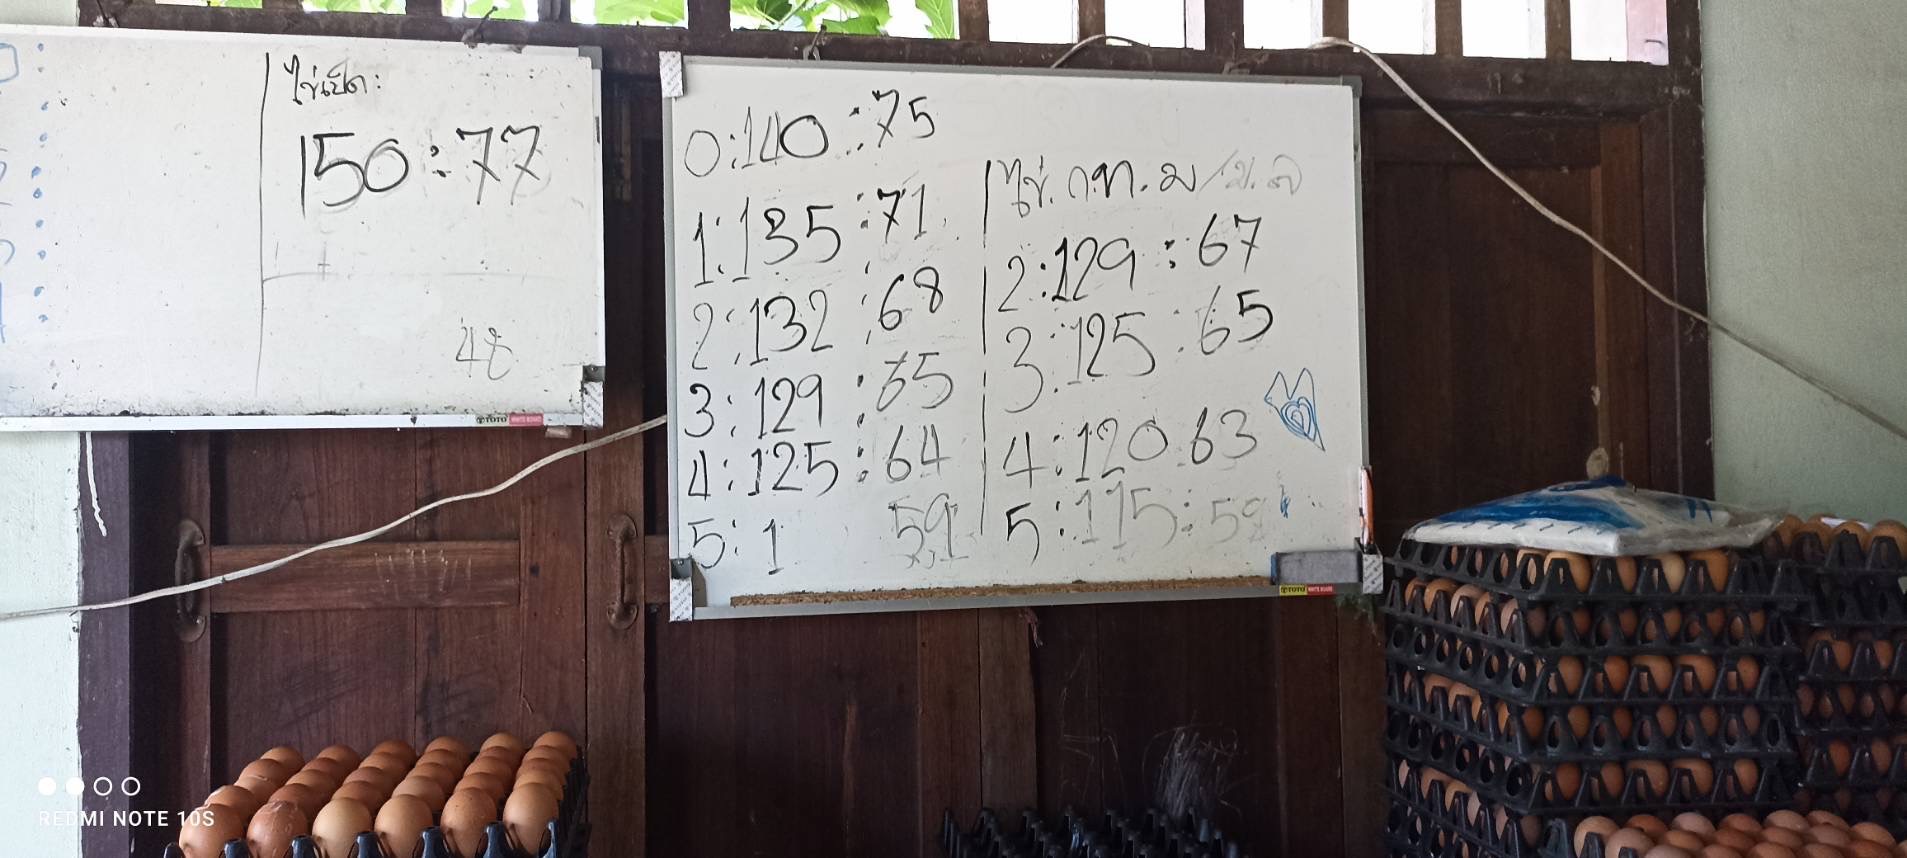 ไข่เป็ด:
150:77
48
TOTO WHITE BOARD
0:140:75
1:135:71
2:132:68
3:129:65
4:125:64
5:1 59
ไข่.ก.ท.ม
2:129:67
3:125:65
4:120 63
5:115:59
TOTO WHITE BOARD
REDMI NOTE 10S